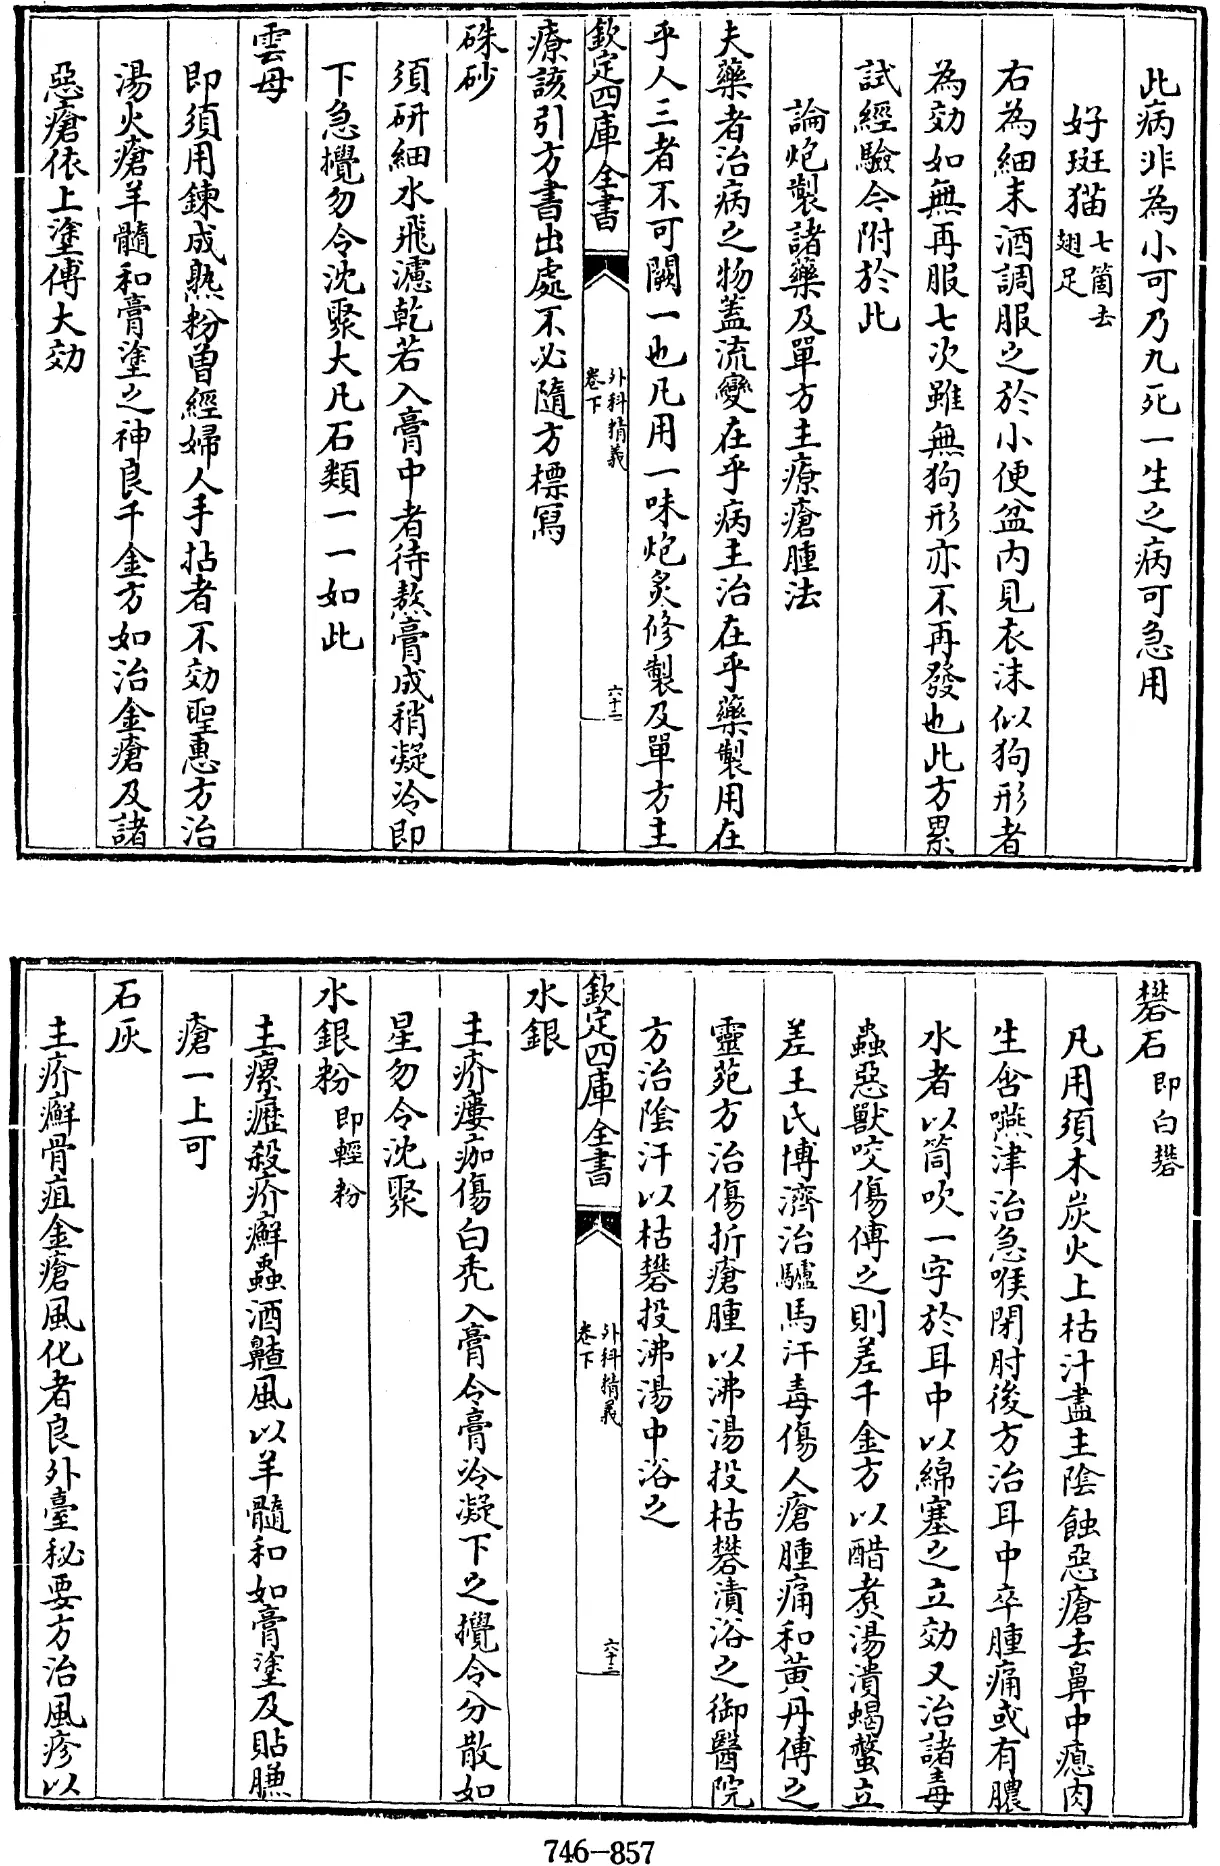 此病非為小可乃九死一生之病可急用
好斑猫七箇去翅足
右為細末酒調服之於小便盆内見衣沫似狗形者
為効如無再服七次雖無狗形亦不再發也此方累
試經驗今附於此
論炮製諸藥及單方主療瘡腫法
夫藥者治病之物蓋流變在乎病主治在乎藥製用在
乎人三者不可闕一也凡用一味炮炙修製及單方主
欽定四庫全書
外科精義
卷下
六十二
療該引方書出處不必隨方標寫
硃砂
須研細水飛濾乾若入膏中者待熬膏成稍凝冷即
下急攪勿令沈聚大凡石類一一如此
雲母
即須用鍊成熟粉曽經婦人手拈者不効聖惠方治
湯火瘡羊髓和膏塗之神良千金方如治金瘡及諸
惡瘡依上塗傅大効
礬石即白礬
凡用須木炭火上枯汁盡主陰蝕惡瘡去鼻中瘜肉
生含嚥津治急喉閉肘後方治耳中卒腫痛或有膿
水者以筒吹一字於耳中以綿塞之立効又治諸毒
蟲惡獸咬傷傅之則差千金方以醋煑湯漬蝎螫立
差王氏博濟治驢馬汗毒傷人瘡腫痛和黄丹傅之
靈苑方治傷折瘡腫以沸湯投枯礬漬浴之御醫院
方治陰汗以枯礬投沸湯中浴之
欽定四庫全書
外科精義
卷下
六十三
水銀
主疥瘻痂傷白禿入膏令膏冷凝下之攪令分散如
星勿令沈聚
水銀粉即輕粉
主瘰癧殺疥癬蟲酒齇風以羊髓和如膏塗及貼臁
瘡一上可
石灰
主疥癬骨疽金瘡風化者良外臺秘要方治風疹以
746-857